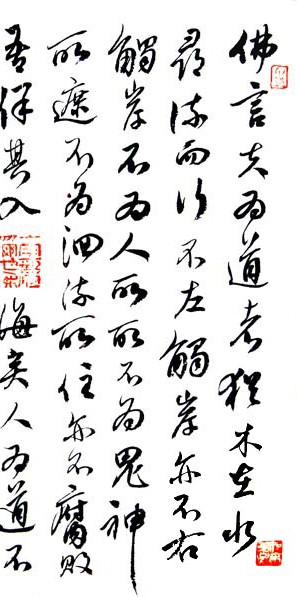 佛言夫为道者猶木在水
尋流而行不左觸岸亦不右
觸岸不为人所所不为鬼神
所遮不为洄流所住亦不腐敗
吾保其入海矣人为道不